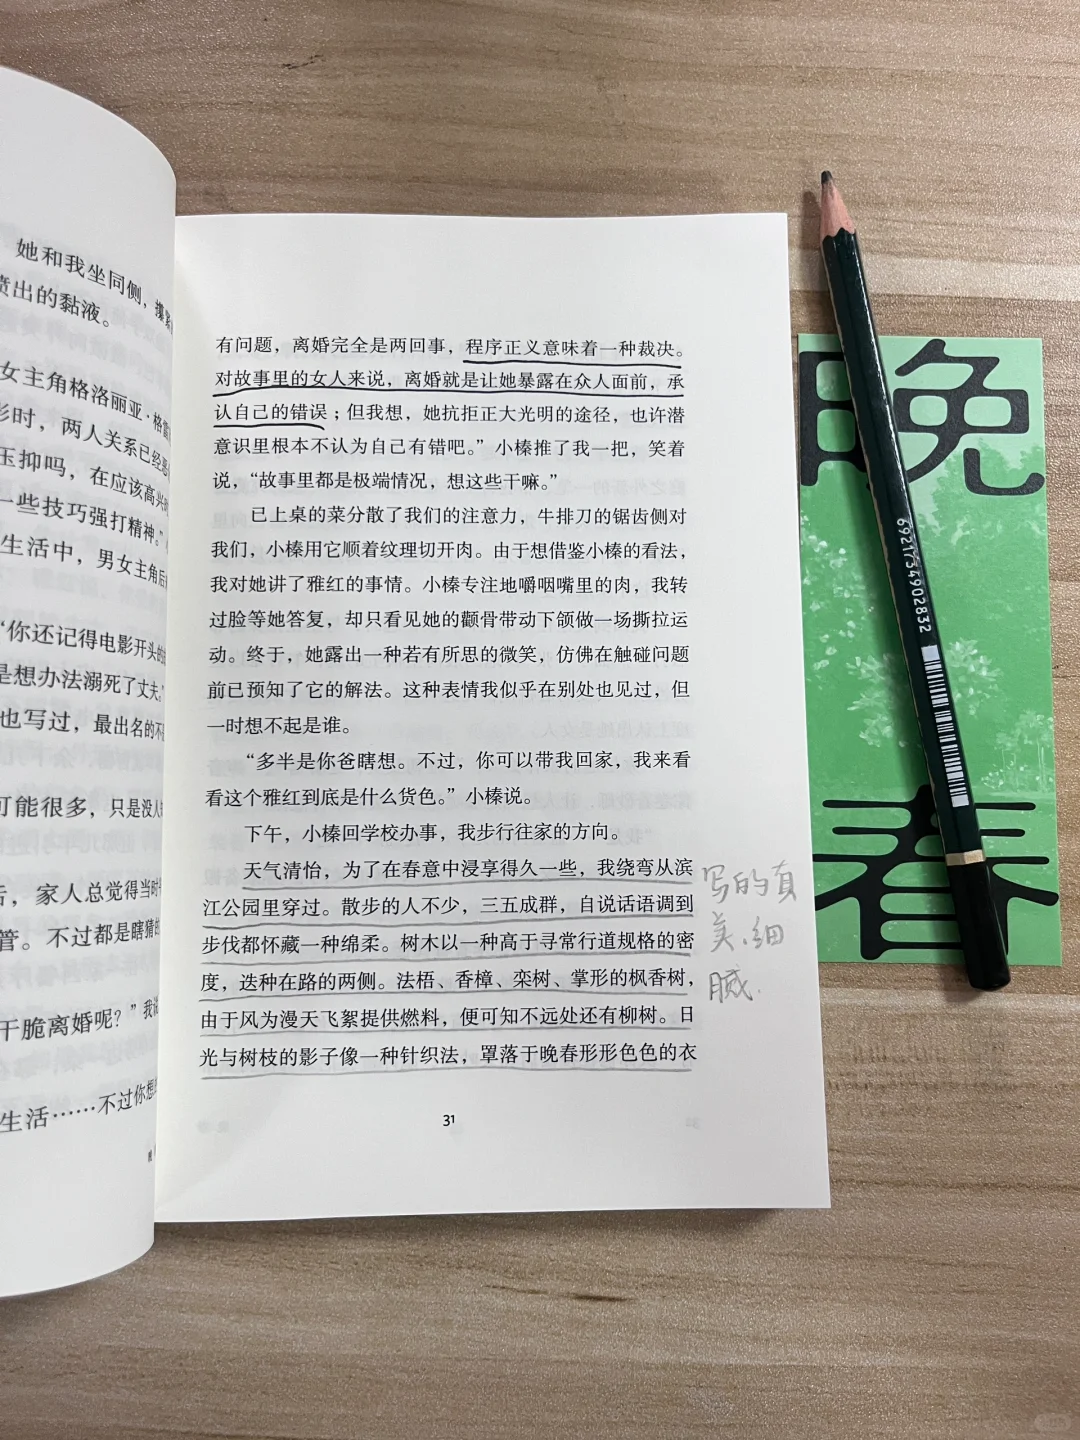 她和我坐同侧，攥紧
喷出的黏液。
女主角格洛丽亚·格雷
影时，两人关系已经恶
压抑吗，在应该高兴
一些技巧强打精神。”
生活中，男女主角后
“你还记得电影开头的
是想办法溺死了丈夫。”
也写过，最出名的不
可能很多，只是没人
后，家人总觉得当时
管。不过都是瞎猜的
干脆离婚呢？”我说
生活……不过你想
有问题，离婚完全是两回事，程序正义意味着一种裁决。
对故事里的女人来说，离婚就是让她暴露在众人面前，承
认自己的错误；但我想，她抗拒正大光明的途径，也许潜
意识里根本不认为自己有错吧。”小榛推了我一把，笑着
说，“故事里都是极端情况，想这些干嘛。”
已上桌的菜分散了我们的注意力，牛排刀的锯齿侧对
我们，小榛用它顺着纹理切开肉。由于想借鉴小榛的看法，
我对她讲了雅红的事情。小榛专注地嚼咽嘴里的肉，我转
过脸等她答复，却只看见她的颧骨带动下颌做一场撕拉运
动。终于，她露出一种若有所思的微笑，仿佛在触碰问题
前已预知了它的解法。这种表情我似乎在别处也见过，但
一时想不起是谁。
“多半是你爸瞎想。不过，你可以带我回家，我来看
看这个雅红到底是什么货色。”小榛说。
下午，小榛回学校办事，我步行往家的方向。
天气清怡，为了在春意中浸享得久一些，我绕弯从滨
江公园里穿过。散步的人不少，三五成群，自说话语调到
步伐都怀藏一种绵柔。树木以一种高于寻常行道规格的密
度，迭种在路的两侧。法梧、香樟、栾树、掌形的枫香树，
由于风为漫天飞絮提供燃料，便可知不远处还有柳树。日
光与树枝的影子像一种针织法，罩落于晚春形形色色的衣
31
写的真
美、细
腻.
晚
春
6921734902832